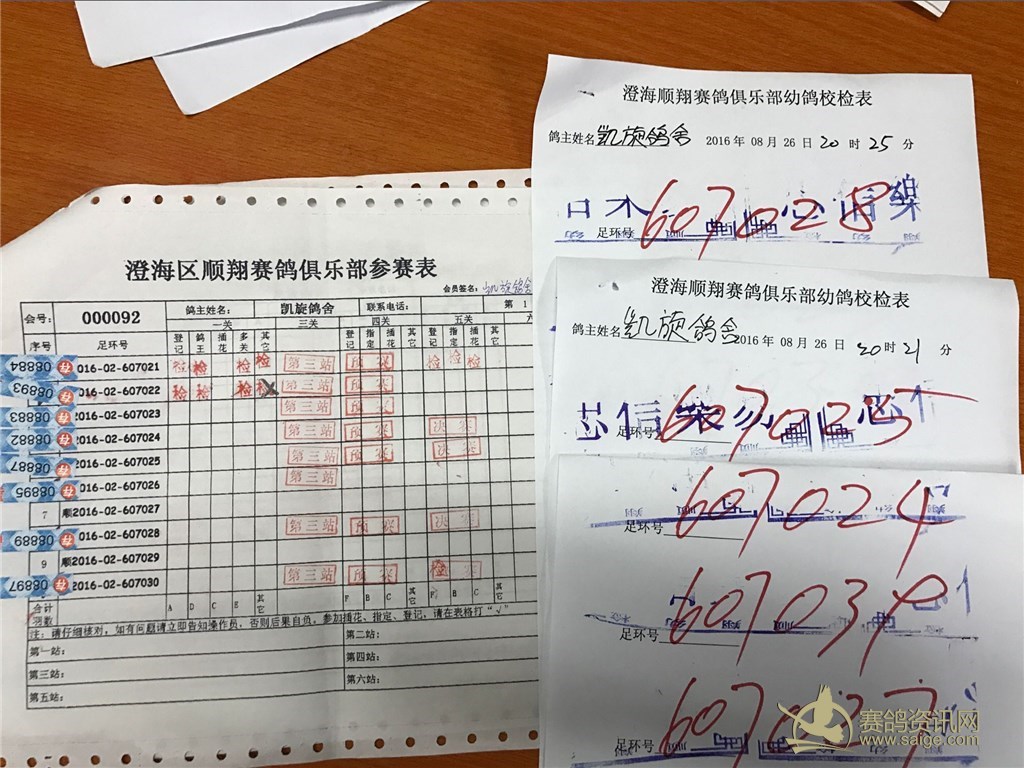 澄海区顺翔赛鸽俱乐部参赛表
会员签名：凯旋鸽舍
会号： 000092 鸽主姓名： 凯旋鸽舍 联系电话： 第 1
序号 足环号 一关 三关 四关 五关 六
登记 鸽王 插花 多关 其它 登记 指定 插花 其它 登记 指定 插花 其它
08884 016-02-607021 检 检 检 检 第三站 预赛 检 检 检
08893 016-02-607022 检 检 检 检 第三站 预赛
08883 2016-02-607023 第三站 预赛
08882 2016-02-607024 第三站 预赛 决赛
08887 2016-02-607025 第三站 预赛 决赛
08895 2016-02-607026 第三站
7 顺2016-02-607027
08889 2016-02-607028 第三站 预赛 决赛
9 顺2016-02-607029
08897 2016-02-607030 第三站 预赛 检
合计羽数 A D C E 其它 F B C 其它 F B C 其它
注：请仔细核对，如有问题请立即告知操作员，否则后果自负。参加插花、指定、登记，请在表格打“√”
第一站： 第二站：
第三站： 第四站：
第五站： 第六站：
澄海顺翔赛鸽俱乐部幼鸽校检表
鸽主姓名 凯旋鸽舍 2016 年 08 月 26 日 20 时 25 分
足环号 607028
澄海顺翔赛鸽俱乐部幼鸽校检表
鸽主姓名 凯旋鸽舍 2016 年 08 月 26 日 20 时 21 分
足环号 607025
足环号 607024
足环号 607034
足环号 607037
赛鸽资讯网
www.saige.com